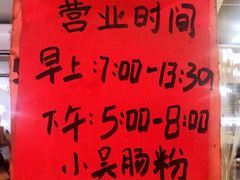 营业时间
早上:7:00-13:30
下午:5:00-8:00
小吴肠粉